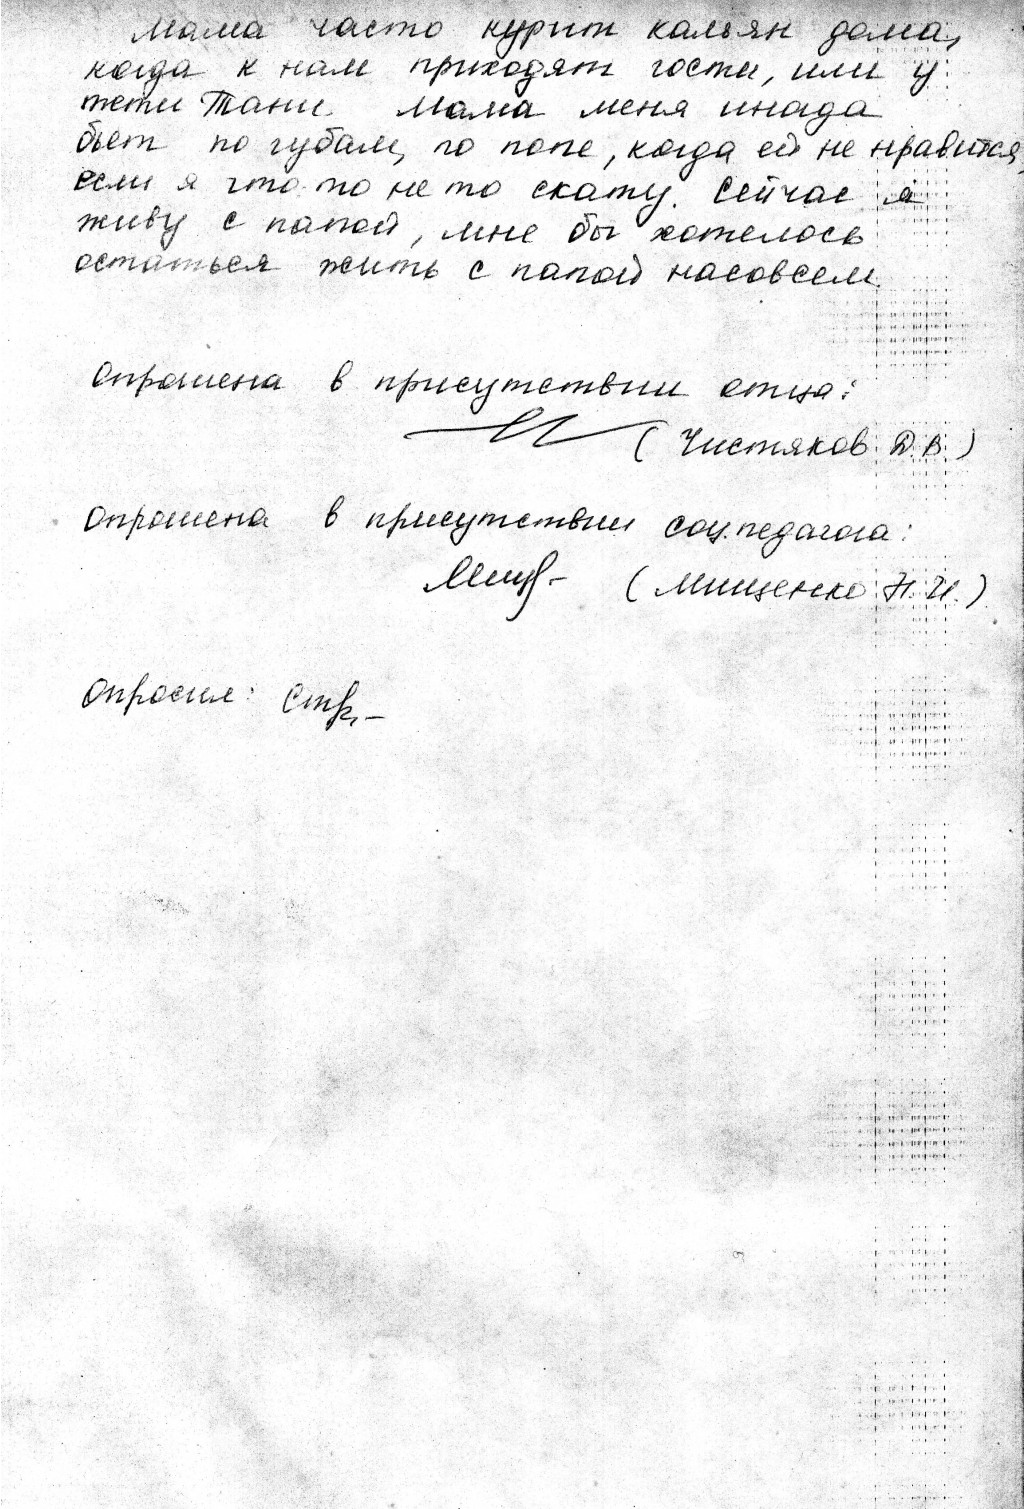 Мама часто курит кальян дома,
когда к нам приходят гости, или у
тети Тани. Мама меня инада
бьет по губам, по попе, когда ей не нравится,
если я что-то не то скажу. Сейчас я
живу с папой, мне бы хотелось
остаться жить с папой насовсем.
Опрошена в присутствии отца:
(Чистяков Д.В.)
Опрошена в присутствии соц.педагога:
(Мищенко Н.И.)
Опросил: